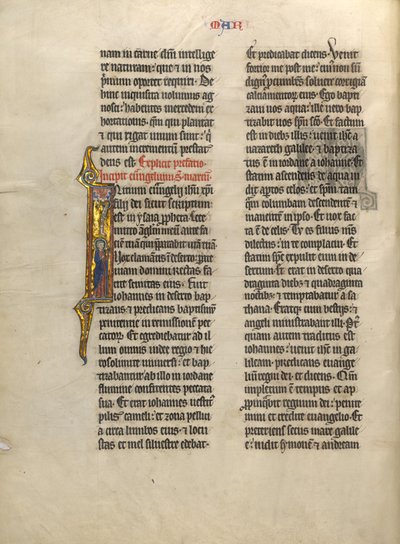 MAR
nam in carne dñi intellige
re naturam: que et in nos
p̃mum oportet requiri. De
hinc inquisita volumus ag
nosci: habentes mercedem ex
hortationis. qm̃ qui plantat
et qui rigat unum sunt: q̾
autem incrementum prestat
deus est. Explicit prefatio.
incipit euangelium s. marcum
INitium euangelii ihũ xp̃i
filii dei sicut scriptum
est in ysaia propheta. Ecce
mitto angl̃m meum ante fa
ciem tuam qui p̃parabit uiam tuam
Uox clamantis in deserto. pa
rate uiam domini rectas fa
cite semitas eius. Fuit
iohannes in deserto bap
tizans et predicans baptismũ
penitentie in remissionẽ pec
catorum. Et egrediebatur ad
illum omnis iudee regio et ihe
rosolimite uniuersi: et bap
tizabantur ab illo in iordane
flumine confitentes peccata
sua. Et erat iohannes uestit̾
pilis cameli: et zona pellici
a circa lumbos eius. et locu
stas et mel siluestre edebat.
Et predicabat dicens. Uenit
fortior me post me: cui̾ non sũ
dign̾ p̃cumbens soluere corrigiã
calciamentorum eius. Ego bapti
zaui uos aqua: ille uero bap
tizabit uos sp̃u sc̃o. Et factum
est in diebus illis: uenit ihc̃ a
nazareth galilee: et baptiza
tus est in iordane a iohanne. Et
statim ascendens de aqua ui
dit apertos celos: et sp̃m tam
quam columbam descendentẽ et
manentẽ in ipso. Et uox fac
ta ẽ de celis. Tu es filius m̃s
dilectus: in te complacui. Et
statim sp̃c expulit eum in de
sertum. Et erat in deserto qua
draginta diebus et quadraginta
noctibus: et temptabatur a sa
thana. Eratque cum bestiis: et
angeli ministrabant illi. P̾t
quam autem traditus est
iohannes: uenit ihc̃ in ga
lileam. predicans euange
lium regni dei: et dicens. Qm̃
impletum ẽ tempus et ap
propinquauit regnum dei: penite
mini et credite euangelio. Et
preteriens secus mare galile
e: uidit symonẽ et andream